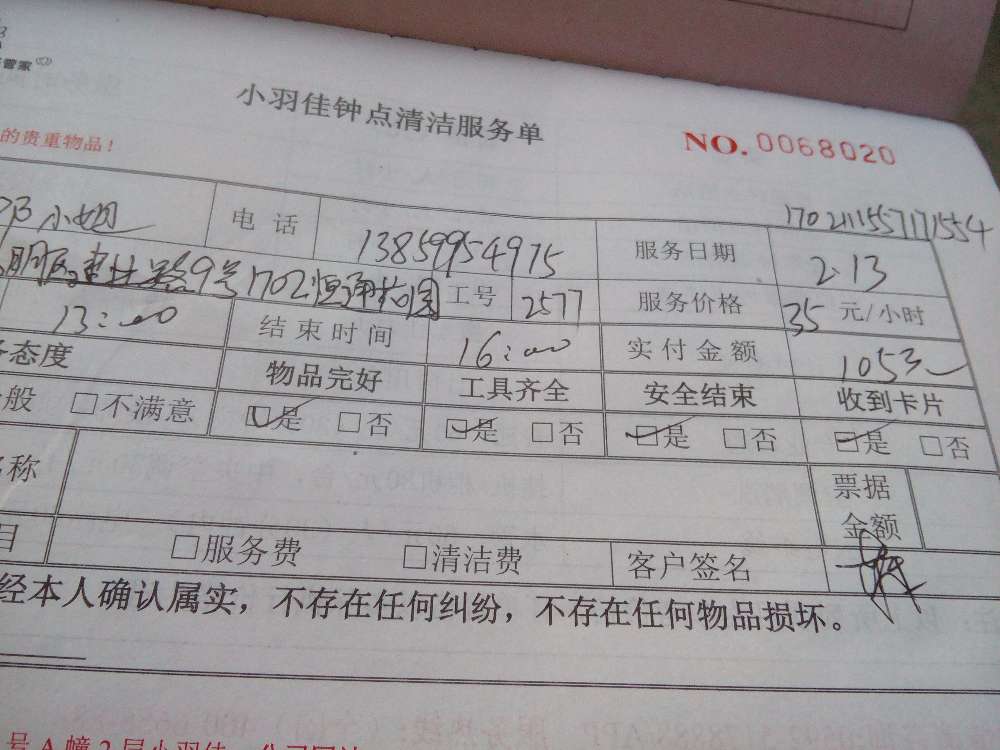 管家
小羽佳钟点清洁服务单
NO.0068020
的贵重物品！
1702111557171554
小姐 电话 13859954975 服务日期 2.13
9号1702恒通花园 工号 2577 服务价格 35 元/小时
13:00 结束时间 16:00 实付金额 105
态度 物品完好 工具齐全 安全结束 收到卡片
般 □不满意 □是 □否 □是 □否 □是 □否 □是 □否
名称 票据金额
目 □服务费 □清洁费 客户签名
经本人确认属实，不存在任何纠纷，不存在任何物品损坏。
号A幢2层小羽佳